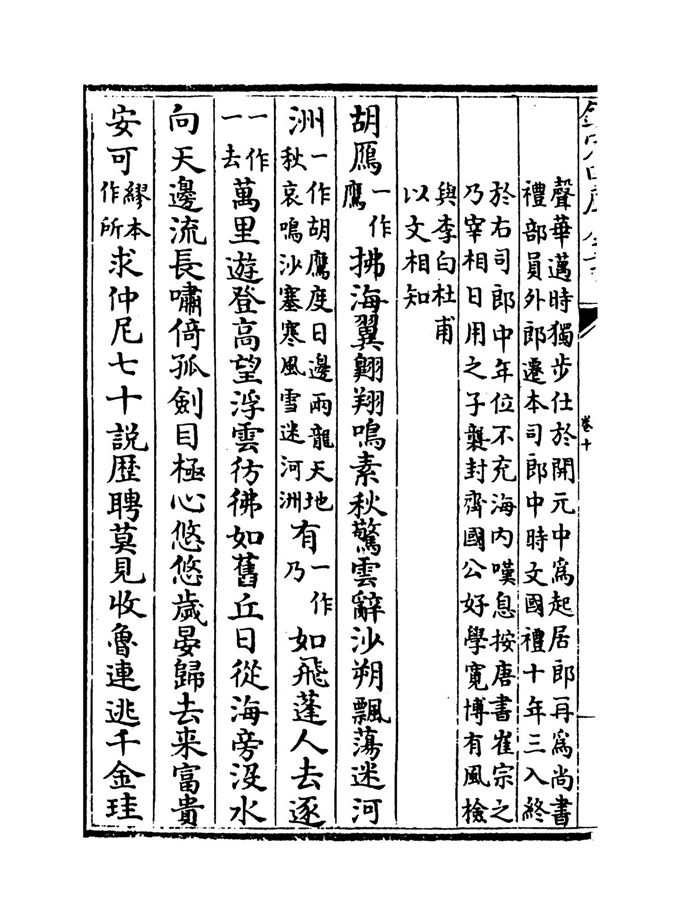 卷十
聲華邁時獨步仕於開元中為起居郎再為尚書
禮部員外郎遷本司郎中時文國禮十年三入終
於右司郎中年位不充海内嘆息按唐書崔宗之
乃宰相日用之子襲封齊國公好學寛博有風檢
與李白杜甫
以文相知
胡鴈一作鷹拂海翼翺翔鳴素秋驚雲辭沙朔飄蕩迷河
洲一作胡鷹度日邊兩龍天地秋哀鳴沙塞寒風雪迷河洲有一作乃如飛蓬人去逐
一作一去萬里遊登高望浮雲彷彿如舊丘日從海旁沒水
向天邊流長嘯倚孤劍目極心悠悠歲晏歸去来富貴
安可繆本作所求仲尼七十說歴聘莫見收魯連逃千金珪